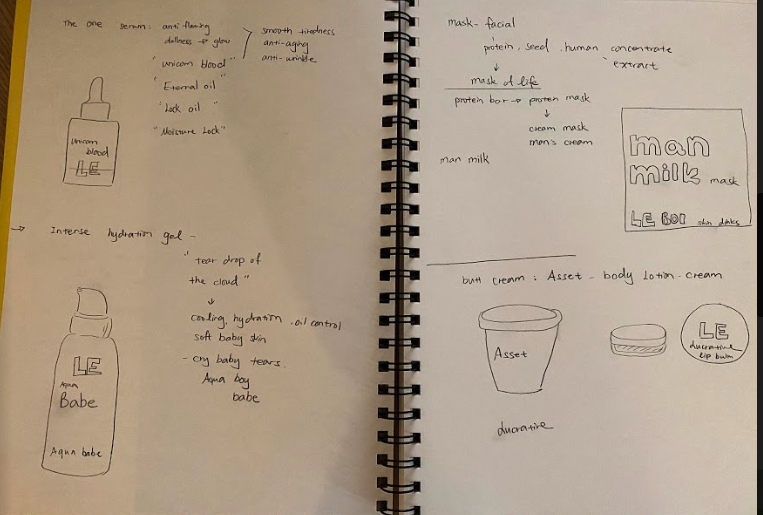 The one serum : anti flaming
dullness → glow
smooth tiredness
anti-aging
anti-wrinkle
"unicorn blood"
"Eternal oil"
"Lock oil"
"Moisture Lock"
unicorn
blood
LE
→ Intense hydration gel -
"tear drop of
the cloud"
↓
cooling, hydration, oil control
soft baby skin
- cry baby tears.
Aqua boy
babe
LE
Aqua
Babe
Aqua babe
mask - facial
protein, seed, human concentrate
extract
↓
mask of life
protein bar → protein mask
↓
cream mask
man's cream
man milk
man
milk mask
LE BOI skin drinks
butt cream : Asset - body lotion - cream
Asset
LE
ducrative
lip balm
ducrative